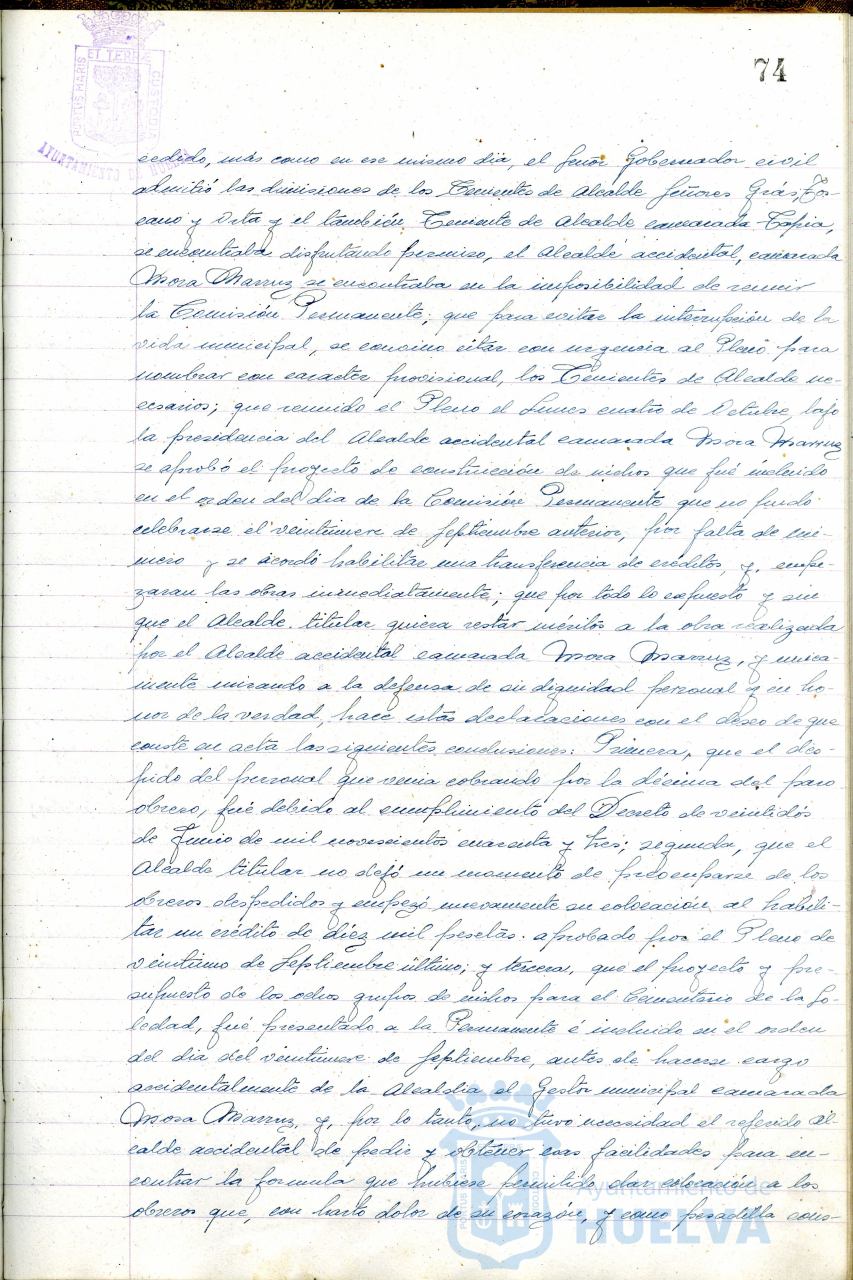 74
PORTUS MARIS
ET TERRÆ
CUSTODIA
AYUNTAMIENTO DE HUELVA
cedido, más como en ese mismo dia, el Señor Gobernador civil
admitió las dimisiones de los Tenientes de Alcalde Señores Grás, Tos-
cano y Orta y el también Teniente de Alcalde camarada Tapia,
se encontraba disfrutando permiso, el Alcalde accidental, camarada
Mora Marruz se encontraba en la imposibilidad de reunir
la Comisión Permanente; que para evitar la interrupción de la
vida municipal, se convino citar con urgencia al Pleno para
nombrar con caracter provisional, los Tenientes de Alcalde ne-
cesarios; que reunido el Pleno el Lunes cuatro de Octubre, bajo
la presidencia del Alcalde accidental camarada Mora Marruz
se aprobó el proyecto de construcción de nichos que fué incluido
en el orden del dia de la Comisión Permanente que no pudo
celebrarse el veintinueve de Septiembre anterior, por falta de nú-
mero y se acordó habilitar una transferencia de créditos, y, empe-
zaran las obras inmediatamente; que por todo lo expuesto y sin
que el Alcalde titular quiera restar méritos a la obra realizada
por el Alcalde accidental camarada Mora Marruz, y unica-
mente mirando a la defensa de su dignidad personal y en ho-
nor de la verdad, hace estas declaraciones con el deseo de que
conste en acta las siguientes conclusiones: Primera, que el des-
pido del personal que venia cobrando por la décima del paro
obrero, fué debido al cumplimiento del Decreto de veintidós
de Junio de mil novecientos cuarenta y tres; segunda, que el
Alcalde titular no dejó un momento de preocuparse de los
obreros despedidos y empezó nuevamente su colocación al habili-
tar un crédito de diez mil pesetas. aprobado por el Pleno de
veintiuno de Septiembre último; y tercera, que el proyecto y pre-
supuesto de los ochos grupos de nichos para el Cementerio de la So-
ledad, fué presentado a la Permanente é incluido en el orden
del dia del veintinueve de Septiembre, antes de hacerse cargo
accidentalmente de la Alcaldia el Gestor municipal camarada
Mora Marruz, y, por lo tanto, no tuvo necesidad el referido Al-
calde accidental de pedir y obtener esas facilidades para en-
contrar la formula que hubiese permitido dar colocación a los
obreros que, con harto dolor de su corazón, y como pesadilla cons-
PORTUS MARIS
CUSTODIA
Ayuntamiento de
HUELVA